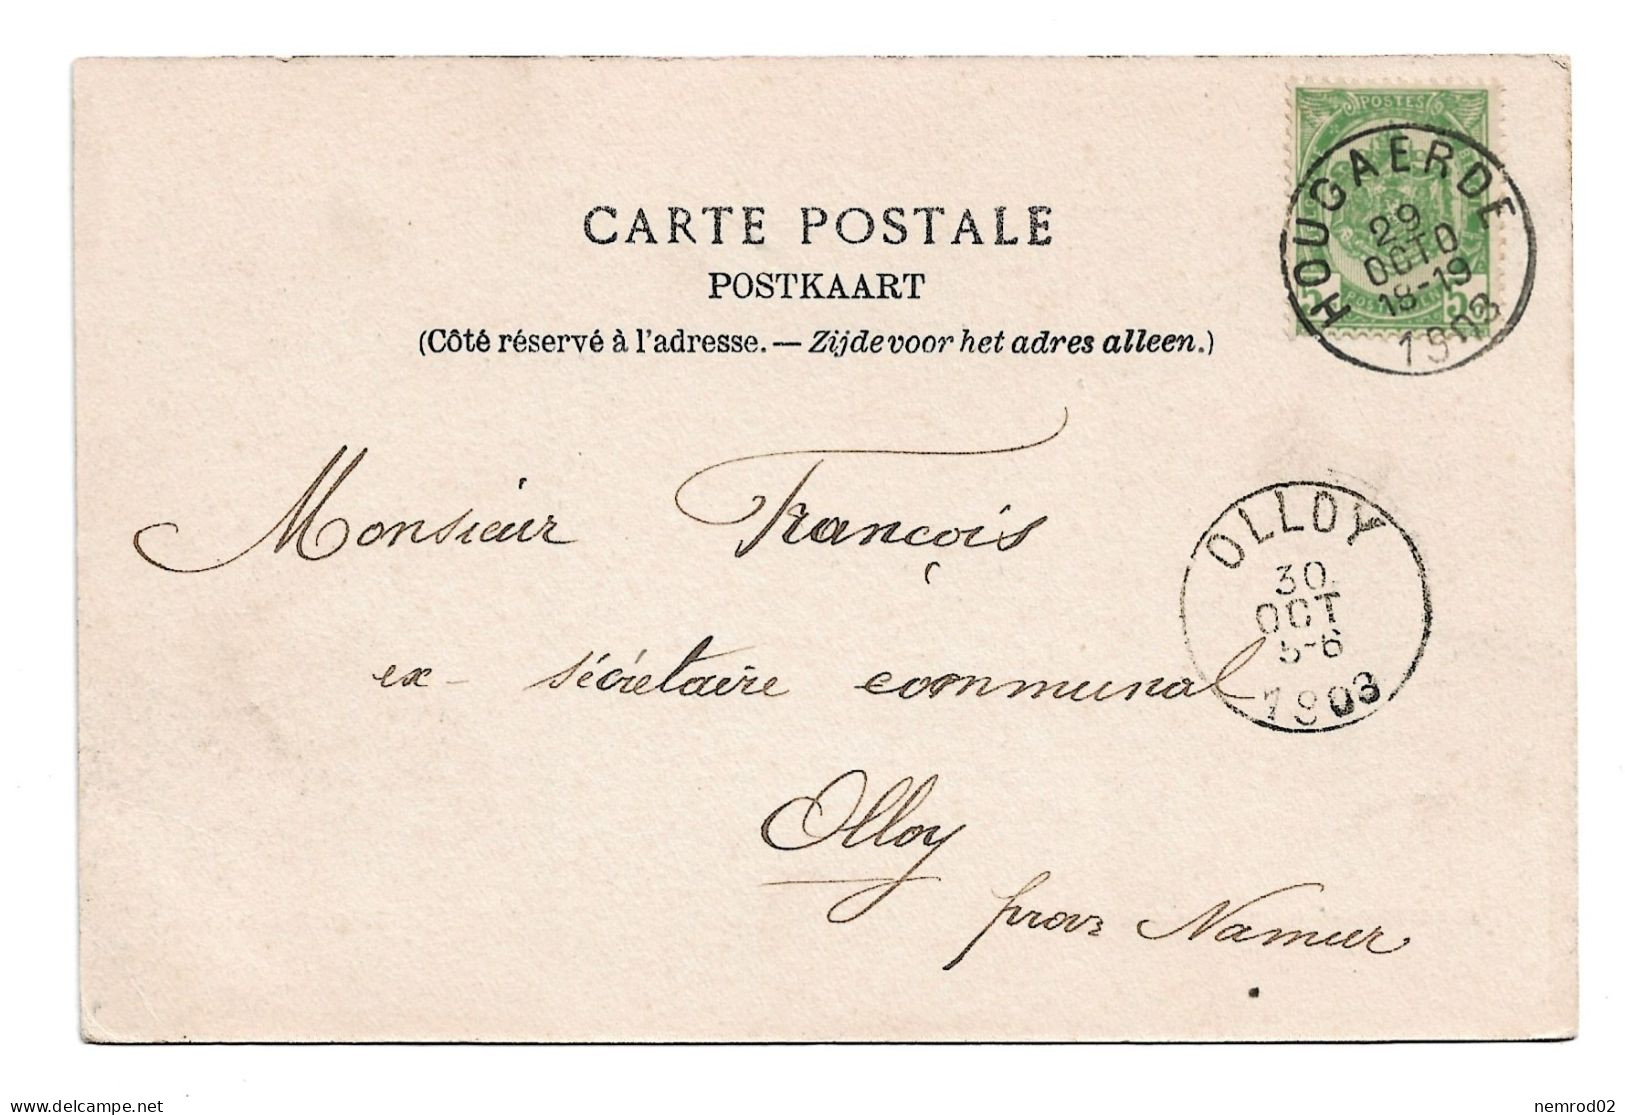 POSTES
HOUGAERDE
29
OCTO
18-19
1903
5 POSTERIJEN 5
CARTE POSTALE
POSTKAART
(Côté réservé à l'adresse. — Zijde voor het adres alleen.)
Monsieur François
OLLOY
30
OCT
5-6
1903
ex-sécrétaire communal
Olloy
prov Namur
www.delcampe.net
nemrod02